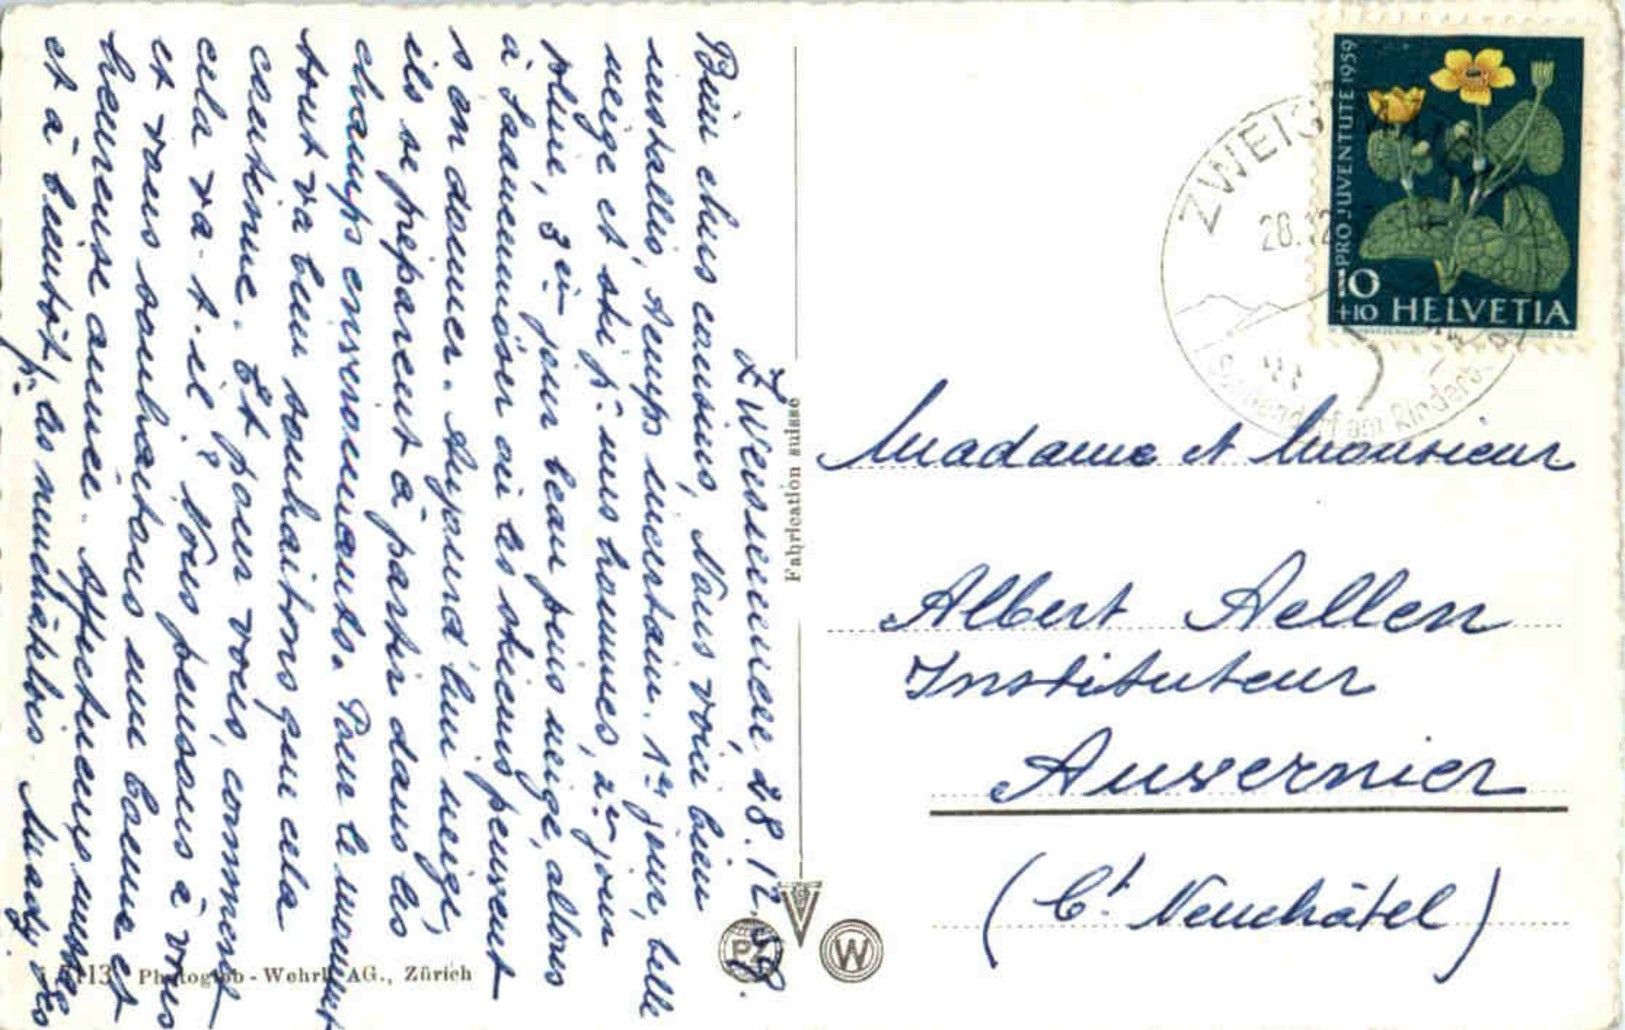 Zweisimmen, 28.12.59.
Bien chers cousins, Nous voici bien
installés, temps incertain. 1er jour, belle
neige et ski pr. mes hommes, 2e jour
pluie, 3e jour beau puis neige, allons
à Saanenmöser où les skieurs peuvent
s'en donner. Aujourd'hui neige,
ils se préparent à partir dans les
champs environnants. Pour le moment
tout va bien souhaitons que cela
continue. Et pour vous, comment
cela va-t-il? Nous pensons à vous
et vous souhaitons une bonne et
heureuse année. Affectueux
et à bientôt, les Neuchâtelois. Mady
Fabrication suisse
Photoglob-Wehrli AG., Zürich
PG
W
PRO JUVENTUTE 1959
10
+10 HELVETIA
28.12
Madame et Monsieur
Albert Aellen
Instituteur
Auvernier
(Ct. Neuchâtel)